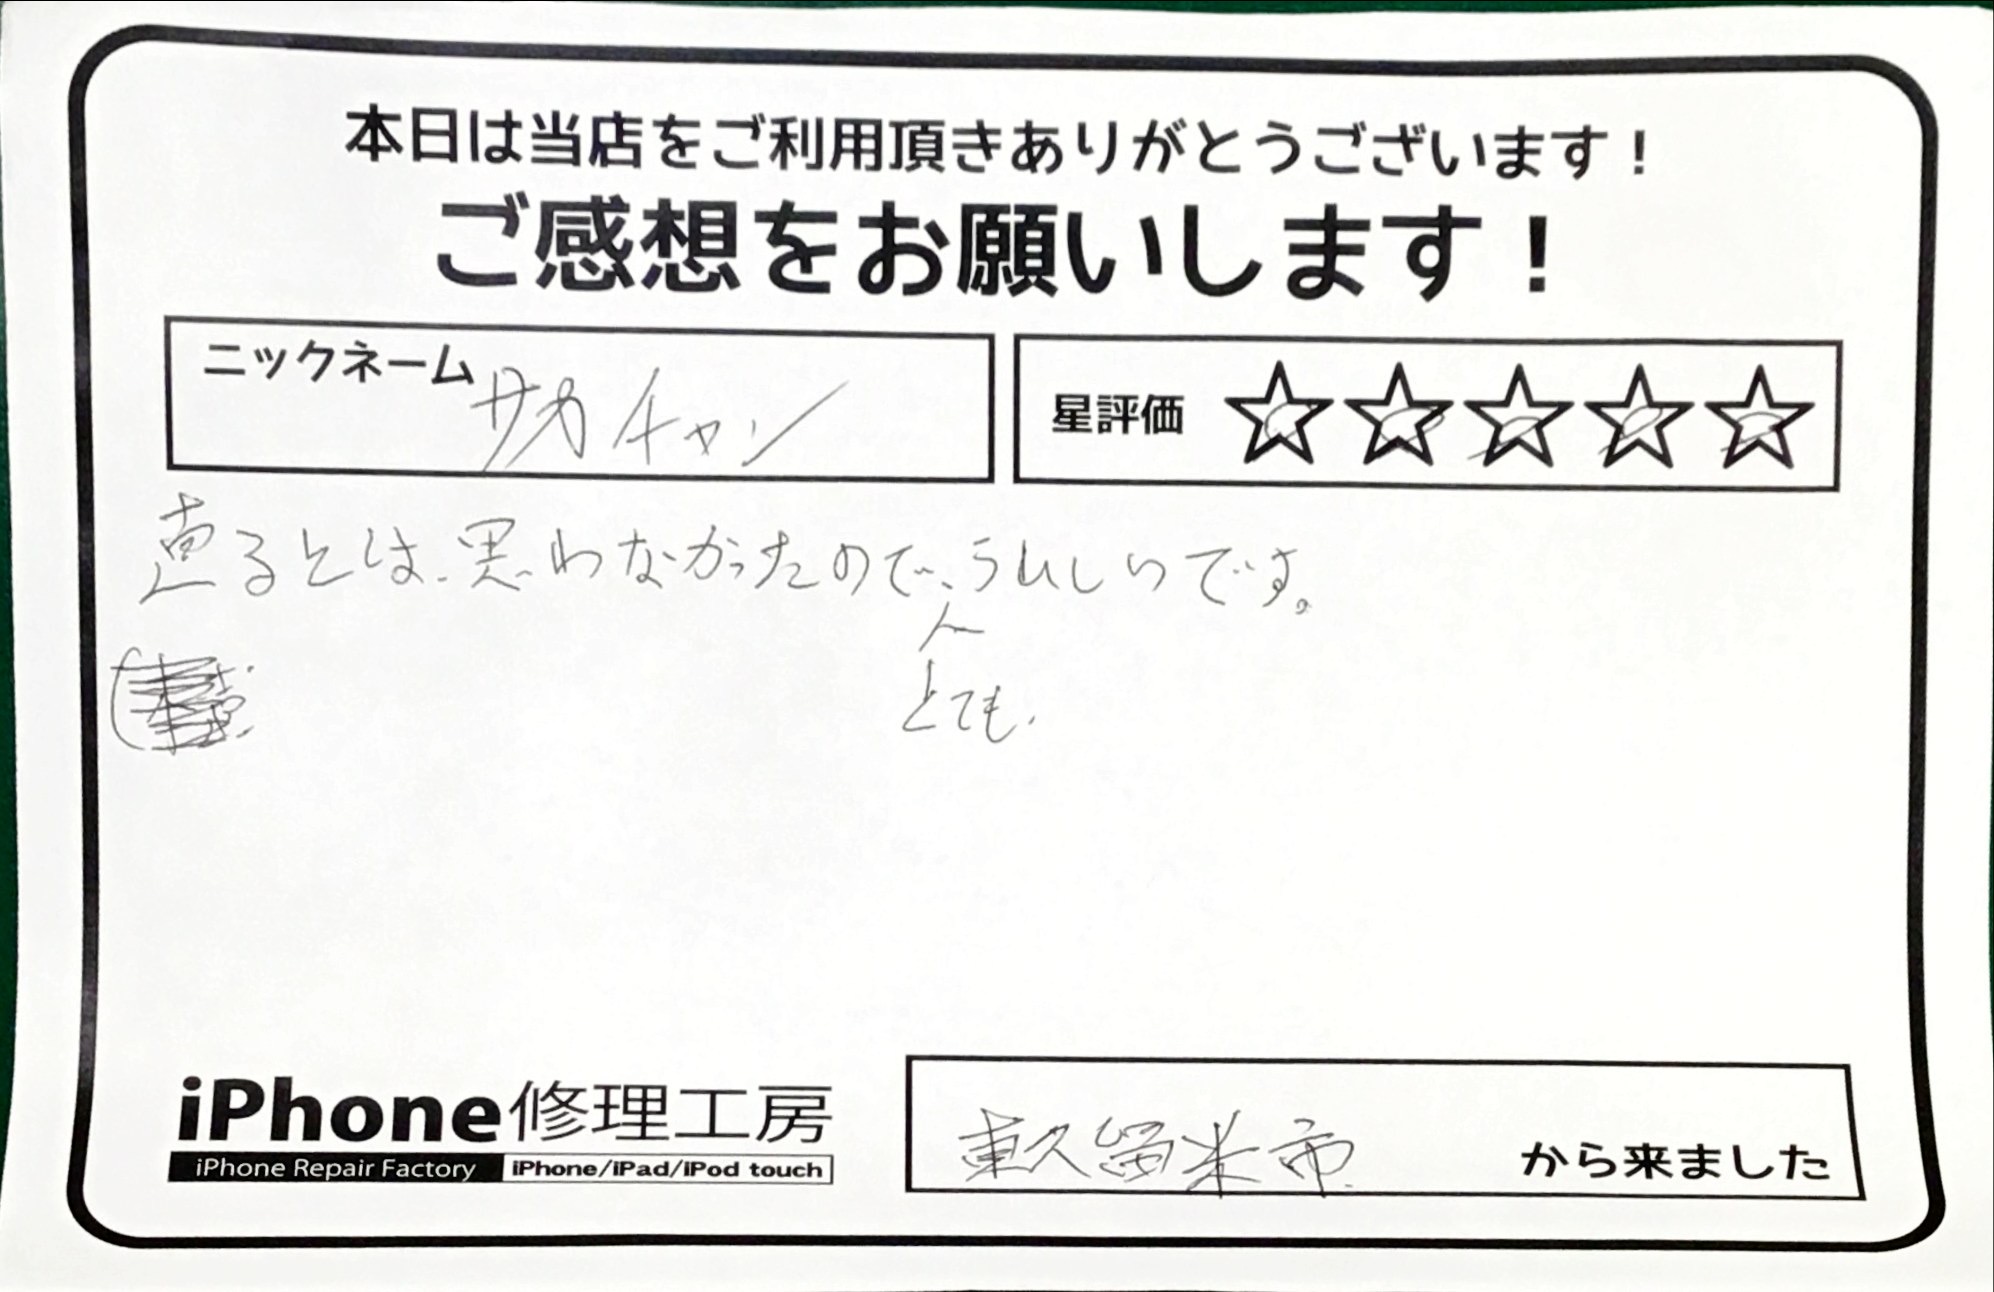 本日は当店をご利用頂きありがとうございます！
ご感想をお願いします！
ニックネーム サカチャン
星評価 ☆☆☆☆☆
直るとは、思わなかったので、うれしいです。
とても
iPhone修理工房
iPhone Repair Factory iPhone/iPad/iPod touch
東久留米市 から来ました